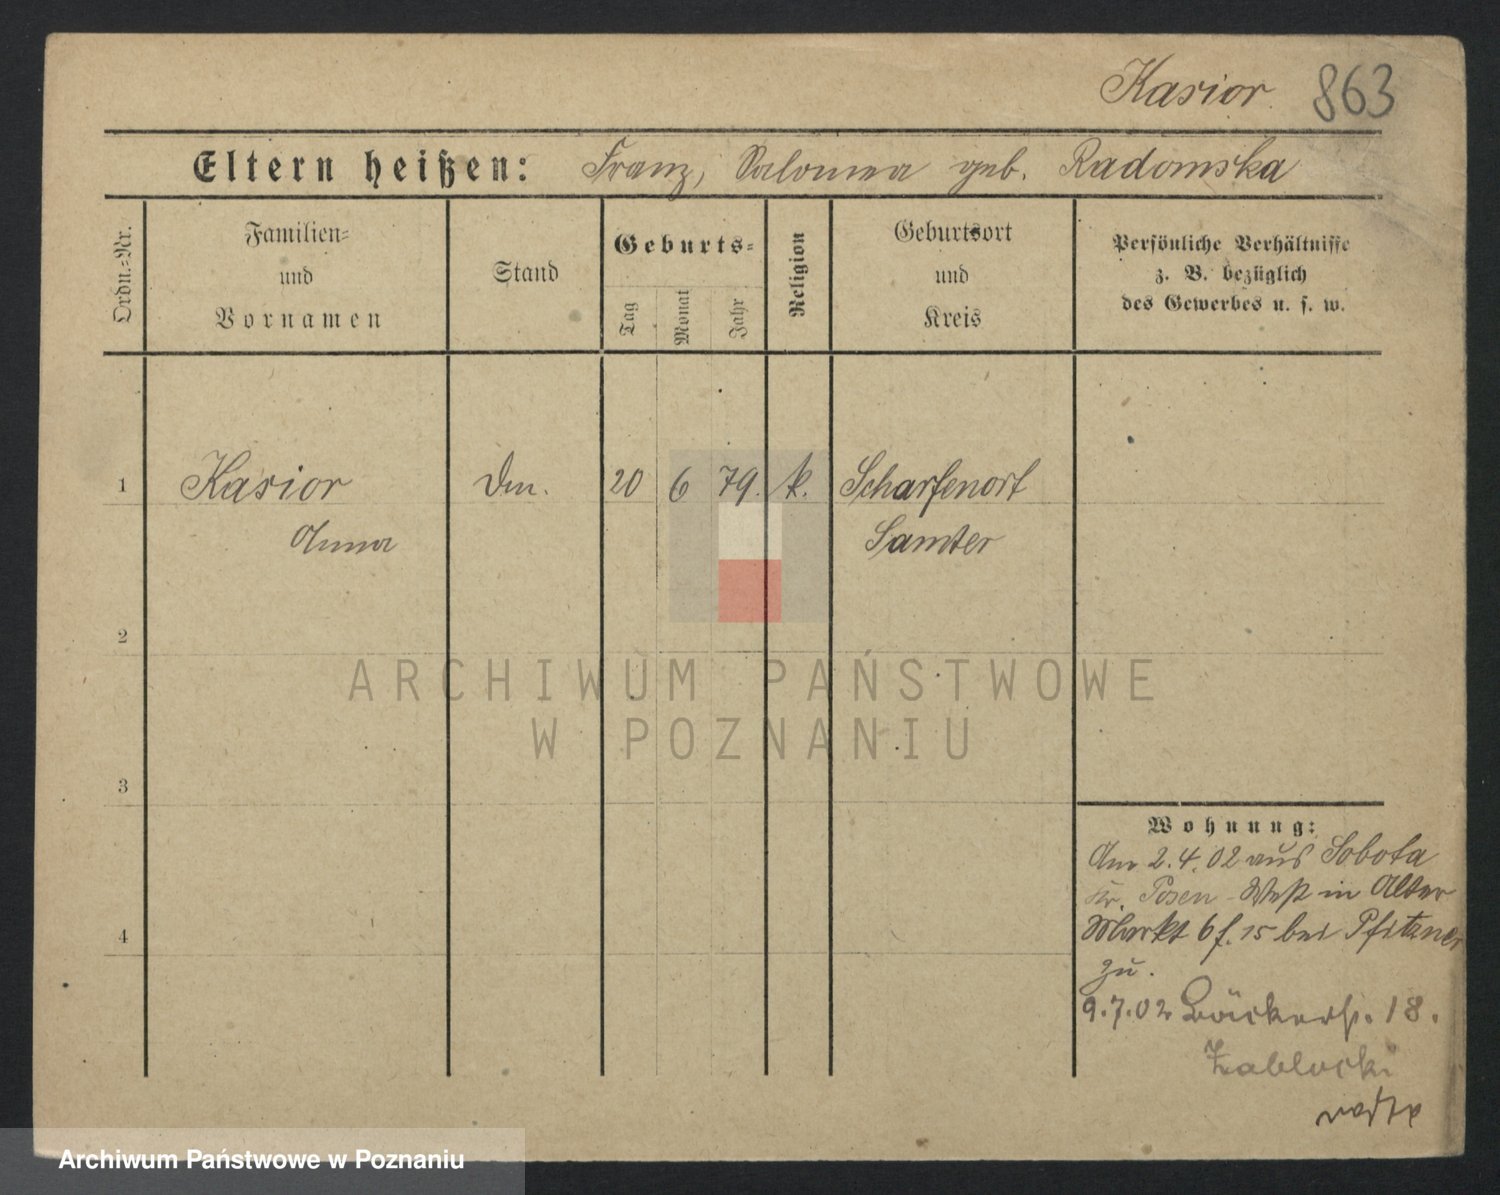 Kasior 863
Eltern heißen: Franz, Salomea geb. Radomska
Ordn.-Nr.
Familien-
und
Vornamen
Stand
Geburts-
Tag
Monat
Jahr
Religion
Geburtsort
und
Kreis
Persönliche Verhältnisse
z. B. bezüglich
des Gewerbes u. s. w.
1 Kasior 20 6 79. k. Scharfenort
Anna Samter
2
3
4
Wohnung:
Am 2.4.02 aus Sobota
Kr. Posen-West in Alter
Markt 6 15 bei Pfitzner
zu.
9.7.02 Bäckerstr. 18.
Zablocki
ARCHIWUM PAŃSTWOWE
W POZNANIU
Archiwum Państwowe w Poznaniu